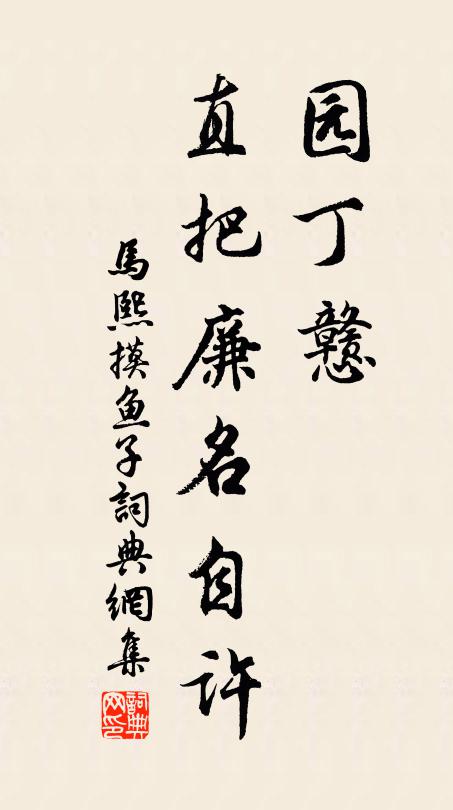 园丁戆
直把廉名自许
馬熙摸鱼子詞典網集
詞典网印